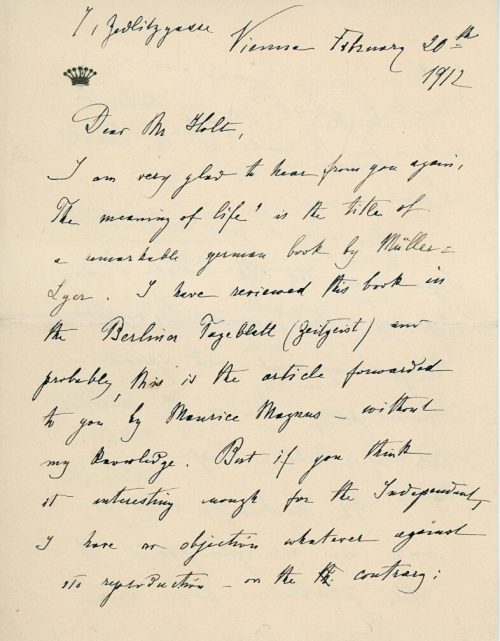 7, Zedlitzgasse
Vienna February 20th
1912
Dear Mr Holt,
I am very glad to hear from you again,
The meaning of life' is the title of
a remarkable german book by Müller=
Lyer. I have reviewed this book in
the Berliner Tageblatt (Zeitgeist) and
probably, this is the article forwarded
to you by Maurice Magnus – without
my knowledge. But if you think
it interesting enough for the Independent,
I have no objection whatever against
its reproduction – on the contrary: